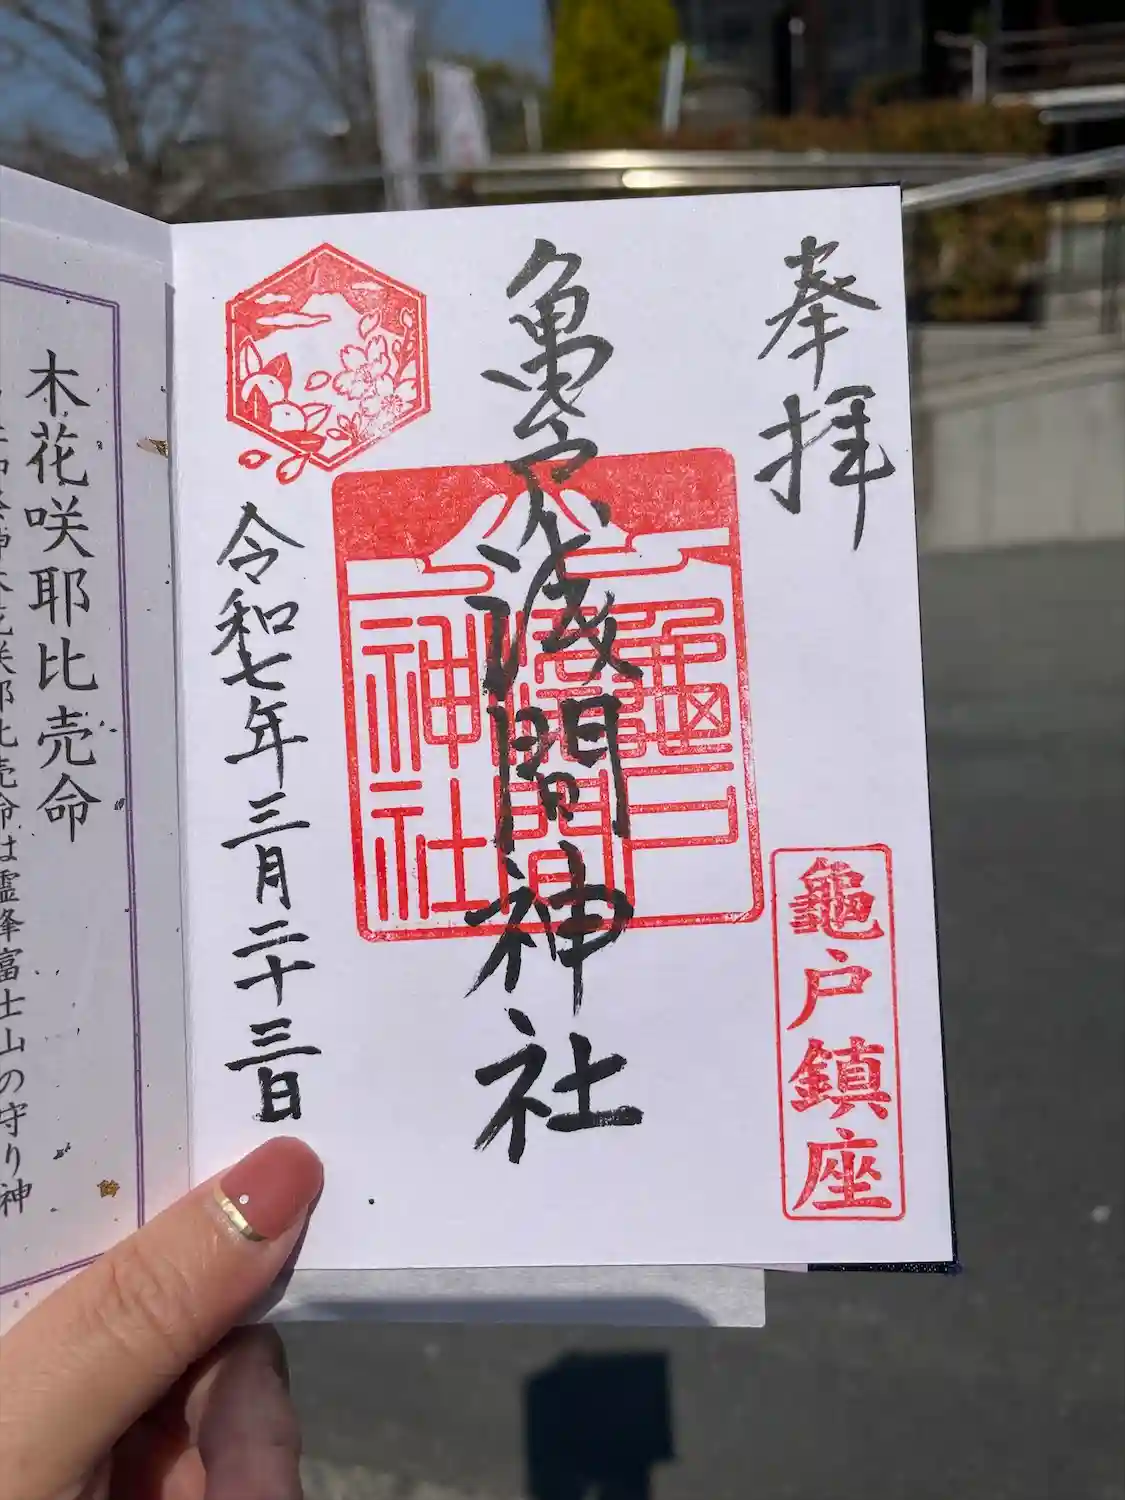 奉拝
亀戸浅間神社
令和七年三月二十三日
龜戸
浅間
神社
龜戸鎮座
木花咲耶比売命
木花咲耶比売命は霊峰富士山の守り神